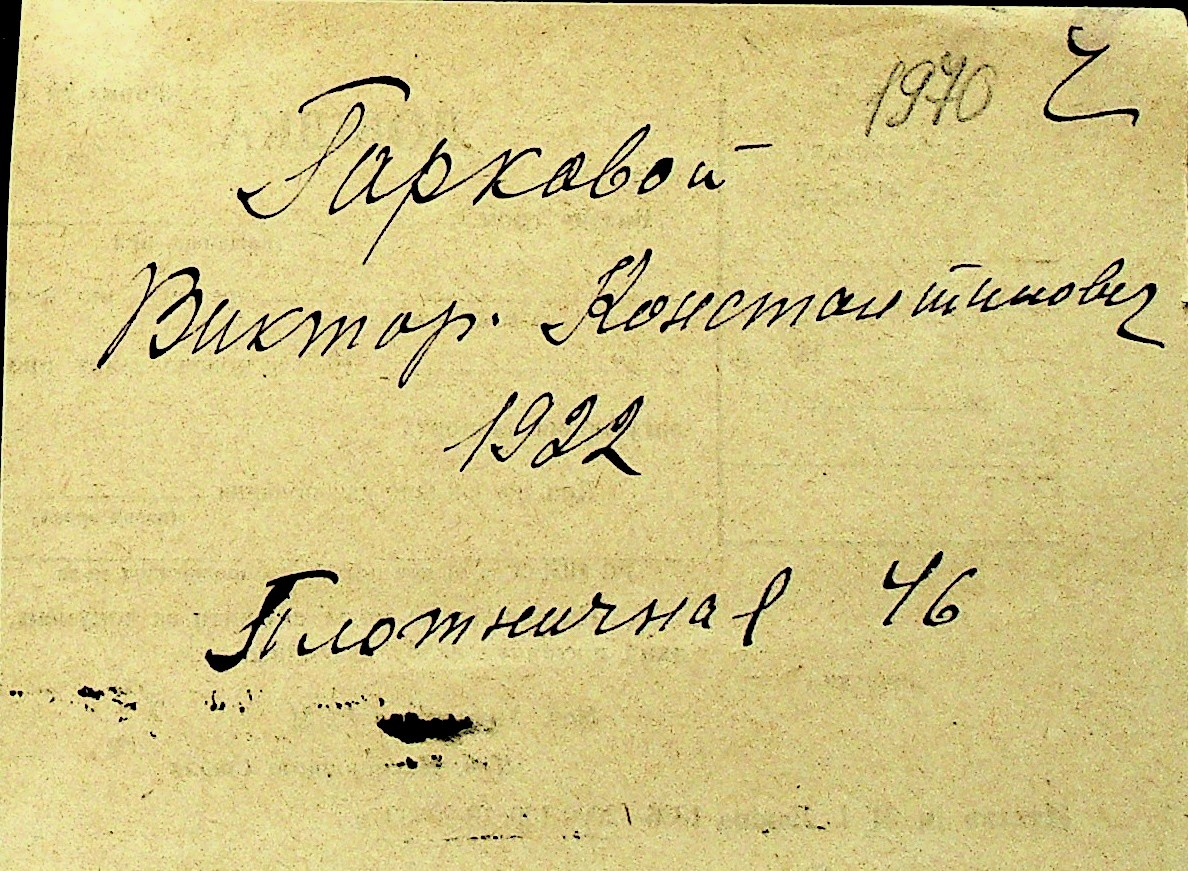 1970 Ч
Гарковой
Виктор. Константинович
1922
Плотничная 46